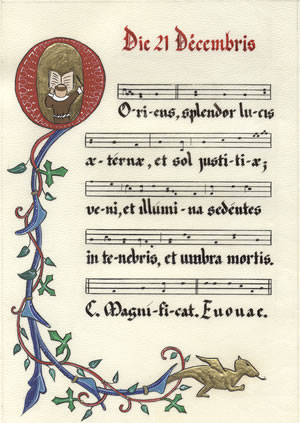 Die 21 Décembris
O-ri-ens, splendor lu-cis
æ-térnæ, et sol justí-ti-æ;
ve-ni, et illúmi-na sedéntes
in te-nebris, et umbra mortis.
C. Magní-fi-cat. Euouae.